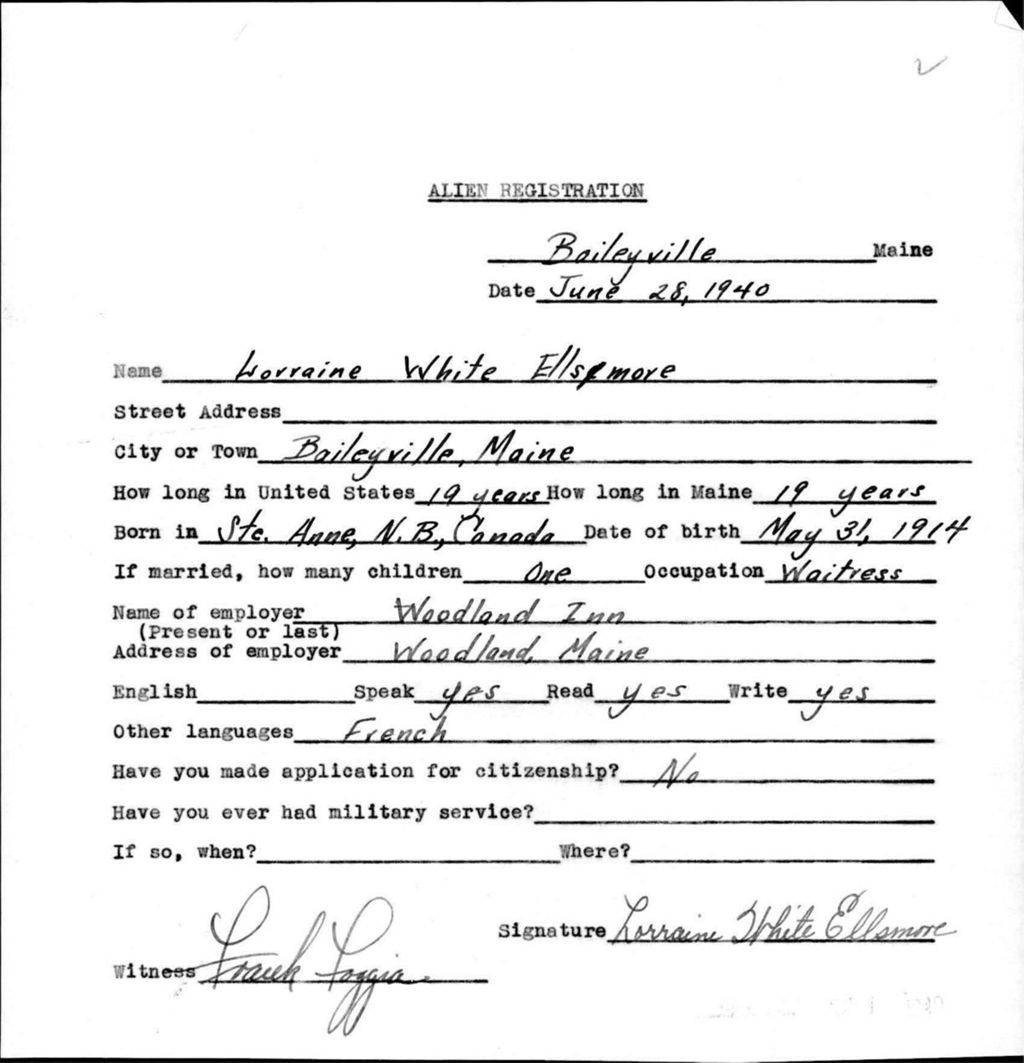 ALIEN REGISTRATION
Baileyville Maine
Date June 28, 1940
Name Lorraine White Ellsmore
Street Address
City or Town Baileyville, Maine
How long in United States 19 years How long in Maine 19 years
Born in Ste. Anne, N.B., Canada Date of birth May 31, 1914
If married, how many children One Occupation Waitress
Name of employer Woodland Inn
(Present or last)
Address of employer Woodland, Maine
English Speak yes Read yes Write yes
Other languages French
Have you made application for citizenship? No
Have you ever had military service?
If so, when? Where?
Signature Lorraine White Ellsmore
Witness Frank Foggia